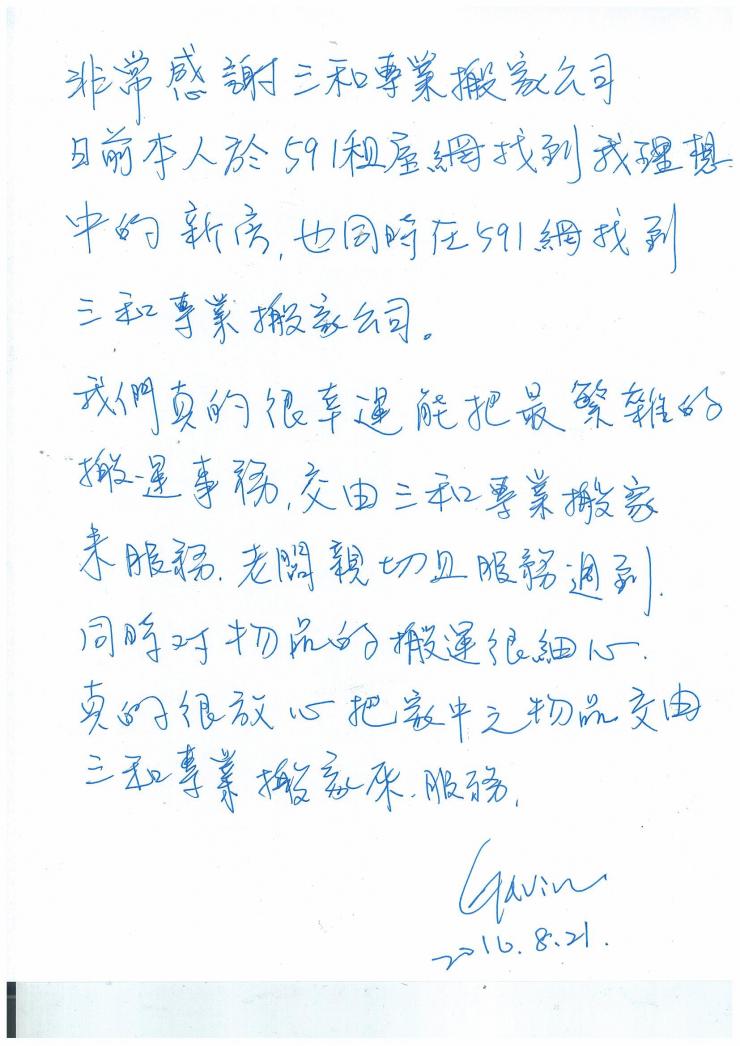 非常感謝三和專業搬家公司
日前本人於591租屋網找到我理想
中的新房,也同時在591網找到
三和專業搬家公司。
我們真的很幸運能把最繁雜的
搬運事務,交由三和專業搬家
來服務.老闆親切且服務週到.
同時对物品的搬運很細心.
真的很放心把家中之物品交由
三和專業搬家來服務.
Gavin
2016.8.21.